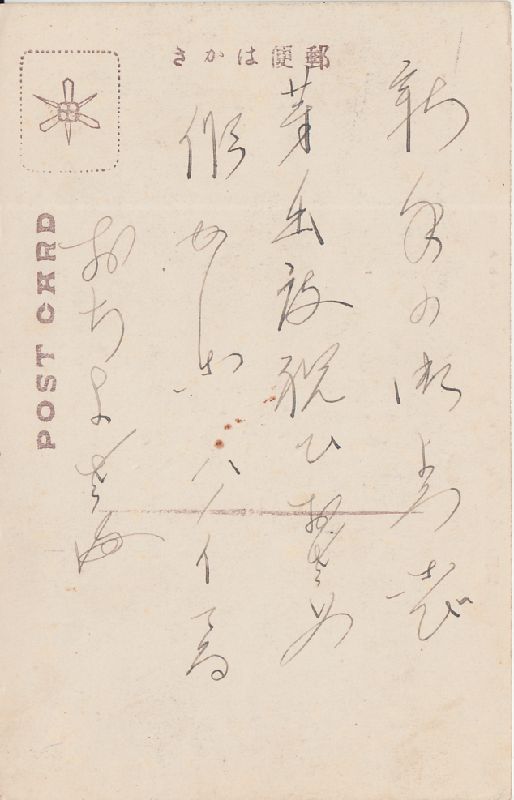 郵便はかき
新年の御よろこび
芽出度祝ひおさめ
候かしこ
おちよさま
POST CARD